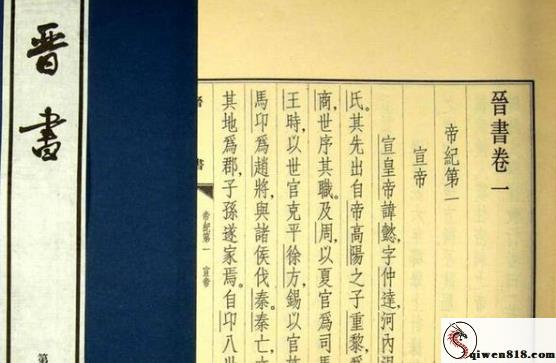 晉書卷一
帝紀第一
宣帝
宣皇帝諱懿，字仲達，河內
氏。其先出自帝高陽之子重黎，
商，世序其職。及周，以夏官爲司
王時，以世官克平徐方，錫以官
馬卬爲趙將，與諸侯伐秦。秦亡，
其地爲郡，子孫遂家焉。自卬八世
書
帝紀第一 宣帝
晋書
第
qiwen818.com